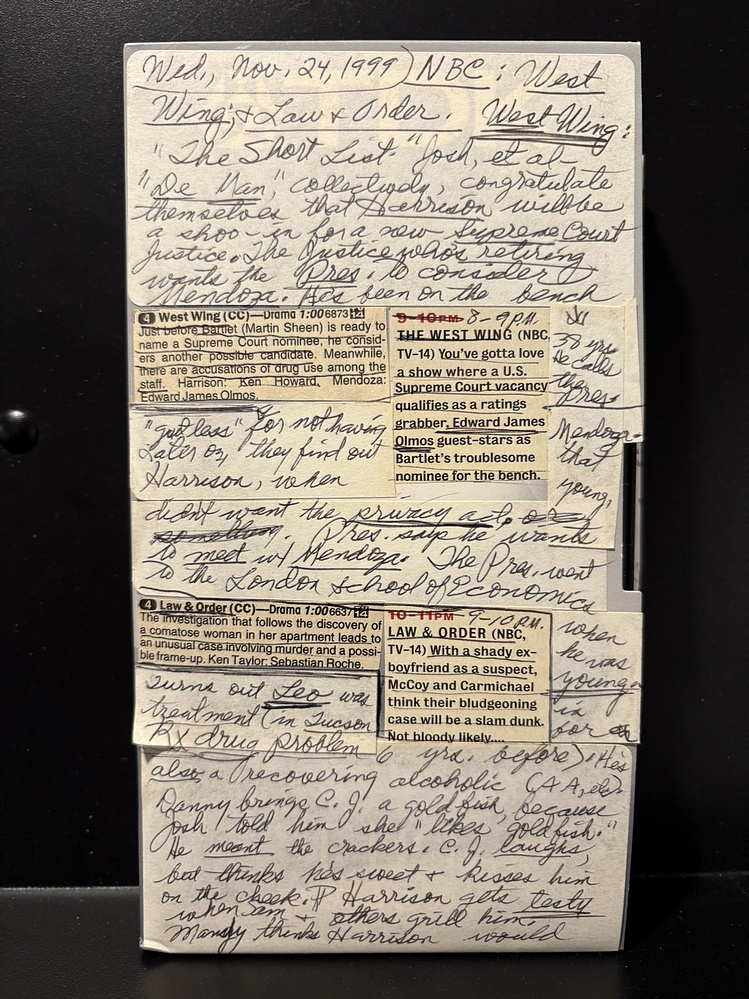 Wed., Nov. 24, 1999) NBC: West
Wing; & Law & Order. West Wing:
"The Short List." Josh, et al-
"De Man," collectively, congratulate
themselves that Harrison will be
a shoo-in for a new Supreme Court
Justice. The Justice who's retiring
wants the Pres. to consider
Mendoza. He's been on the bench
4 West Wing (CC)—Drama 1:00 6873
Just before Bartlet (Martin Sheen) is ready to
name a Supreme Court nominee, he consid-
ers another possible candidate. Meanwhile,
there are accusations of drug use among the
staff. Harrison: Ken Howard. Mendoza:
Edward James Olmos.
9-10PM 8-9 P.M.
THE WEST WING (NBC,
TV-14) You've gotta love
a show where a U.S.
Supreme Court vacancy
qualifies as a ratings
grabber. Edward James
Olmos guest-stars as
Bartlet's troublesome
nominee for the bench.
38 yrs.
He calls
the
Pres.
"gutless" for not having
Mendoza.
Later on, they find out
that
Harrison, when
young,
didn't want the privacy act, or
something. Pres. says he wants
to meet w/ Mendoza. The Pres. went
to the London School of Economics
4 Law & Order (CC)—Drama 1:00 6637
The investigation that follows the discovery of
a comatose woman in her apartment leads to
an unusual case involving murder and a possi-
ble frame-up. Ken Taylor: Sebastian Roche.
10-11PM 9-10 P.M.
LAW & ORDER (NBC,
TV-14) With a shady ex-
boyfriend as a suspect,
McCoy and Carmichael
think their bludgeoning
case will be a slam dunk.
Not bloody likely....
when
he was
young.
Turns out Leo was
in
treatment (in Tucson
for
Rx drug problem 6 yrs. before). He's
also a recovering alcoholic (AA, etc.)
Danny brings C.J. a goldfish, because
Josh told him she "likes goldfish."
He meant the crackers. C.J. laughs,
but thinks he's sweet & kisses him
on the cheek. ¶ Harrison gets testy
when Sam & others grill him.
Mandy thinks Harrison would